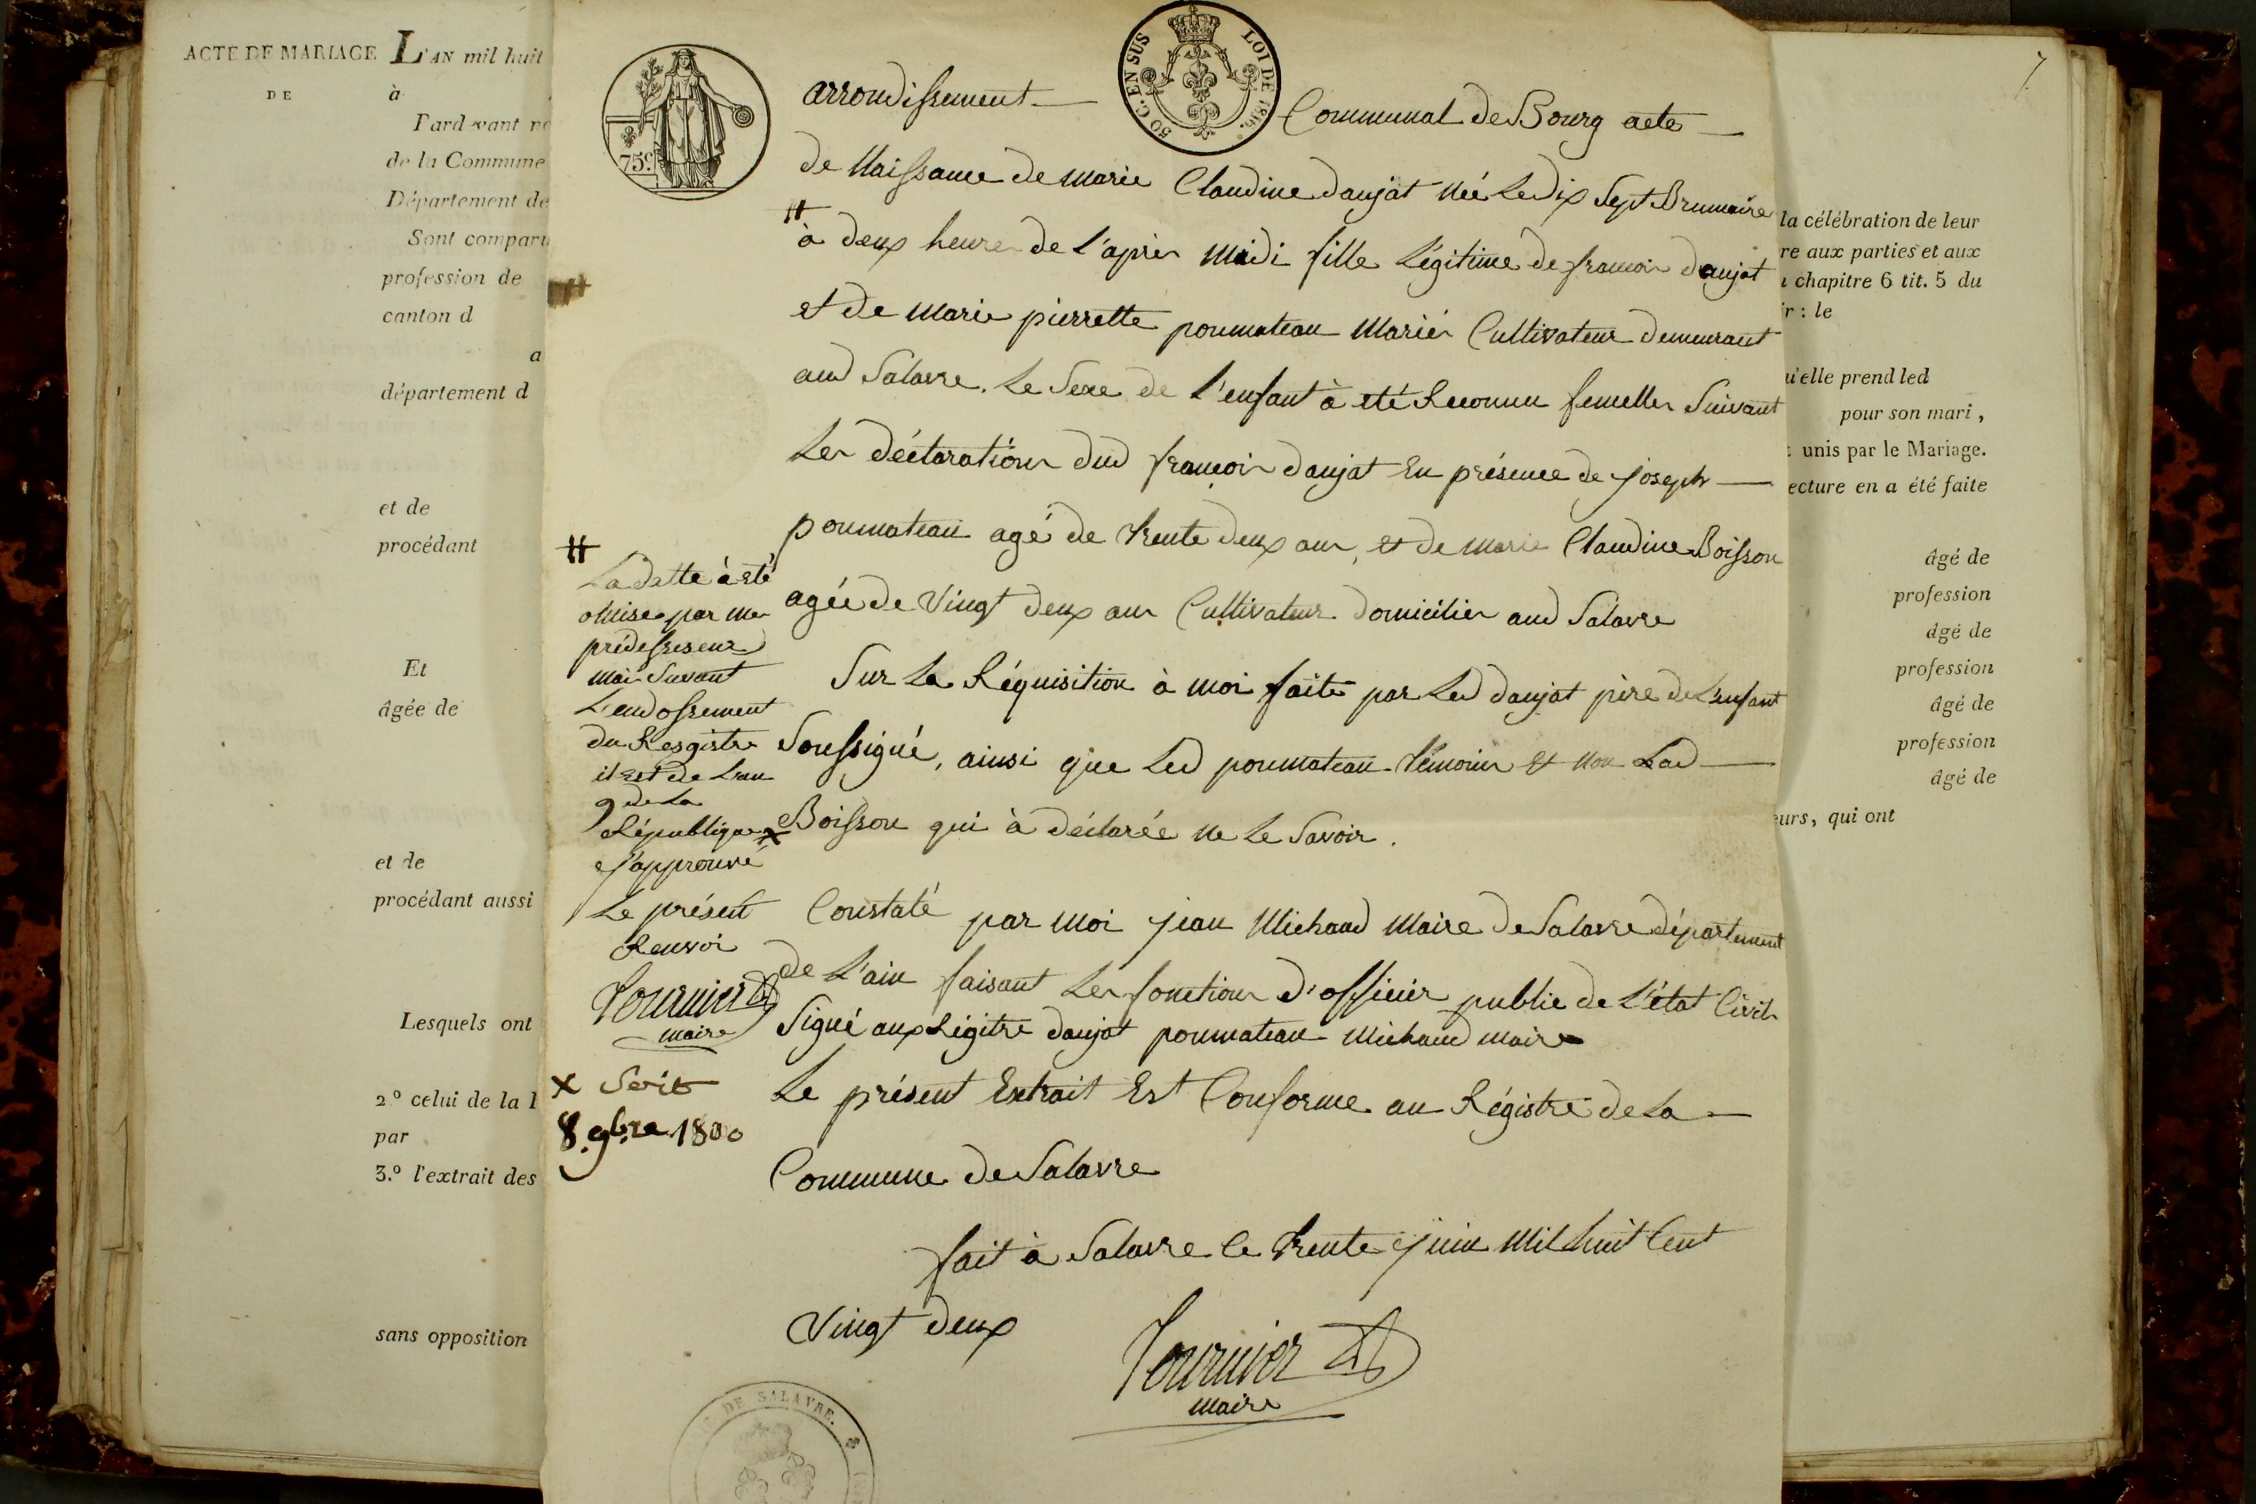 ACTE DE MARIAGE
DE
L'AN mil huit
à
Pardevant
de la Commune
Département de
Sont comparu
profession de
canton d
a
département d
et de
procédant
Et
âgée de
et de
procédant aussi
Lesquels ont
2.º celui de la
par
3.º l'extrait des
sans opposition
75.c
50 C. EN SUS
LOI DE 1816.
arrondissement Communal de Bourg acte
de Naissance de marie Claudine daujat née Le dix Sept Brumaire
# à deux heures de L'après midi fille Légitime de françois daujat
et de marie pierrette poumateau Mariés Cultivateur demeurant
aud Salavre. Le Sexe de l'enfant à eté Reconnu femelle Suivant
Les déclarations dud françois daujat En présence de joseph
poumateau agé de trente deux ans, et de marie Claudine Boisson
agée de vingt deux ans Cultivateurs domiciliés aud Salavre
Sur La Réquisition à moi faite par Led daujat père de L'enfant
Soussigné, ainsi que Led poumateau témoins et non Lad
Boisson qui à déclarée ne Le Savoir.
Constaté par moi jean Michaud Maire de Salavre département
de L'ain faisant Les fonctions d'officier public de L'état Civil
Signé aux Régitre daujat poumateau Michaud maire
Le présent Extrait Est Conforme au Régistre de La
Commune de Salavre
fait à Salavre le trente juin mil huit Cent
vingt deux
Tournier
maire
#
La datte à eté
omise par mes
prédessesseur
mais Suvant
L'endossement
du Resgistre
il est de L'an
9 de La
République x
j'approuvé
Le présent
Renvoi
Tournier
maire
x Soit
8. 9bre 1800
DE SALAVRE.
7
la célébration de leur
re aux parties et aux
chapitre 6 tit. 5 du
r : le
u'elle prend led
pour son mari,
unis par le Mariage.
ecture en a été faite
âgé de
profession
âgé de
profession
âgé de
profession
âgé de
eurs, qui ont